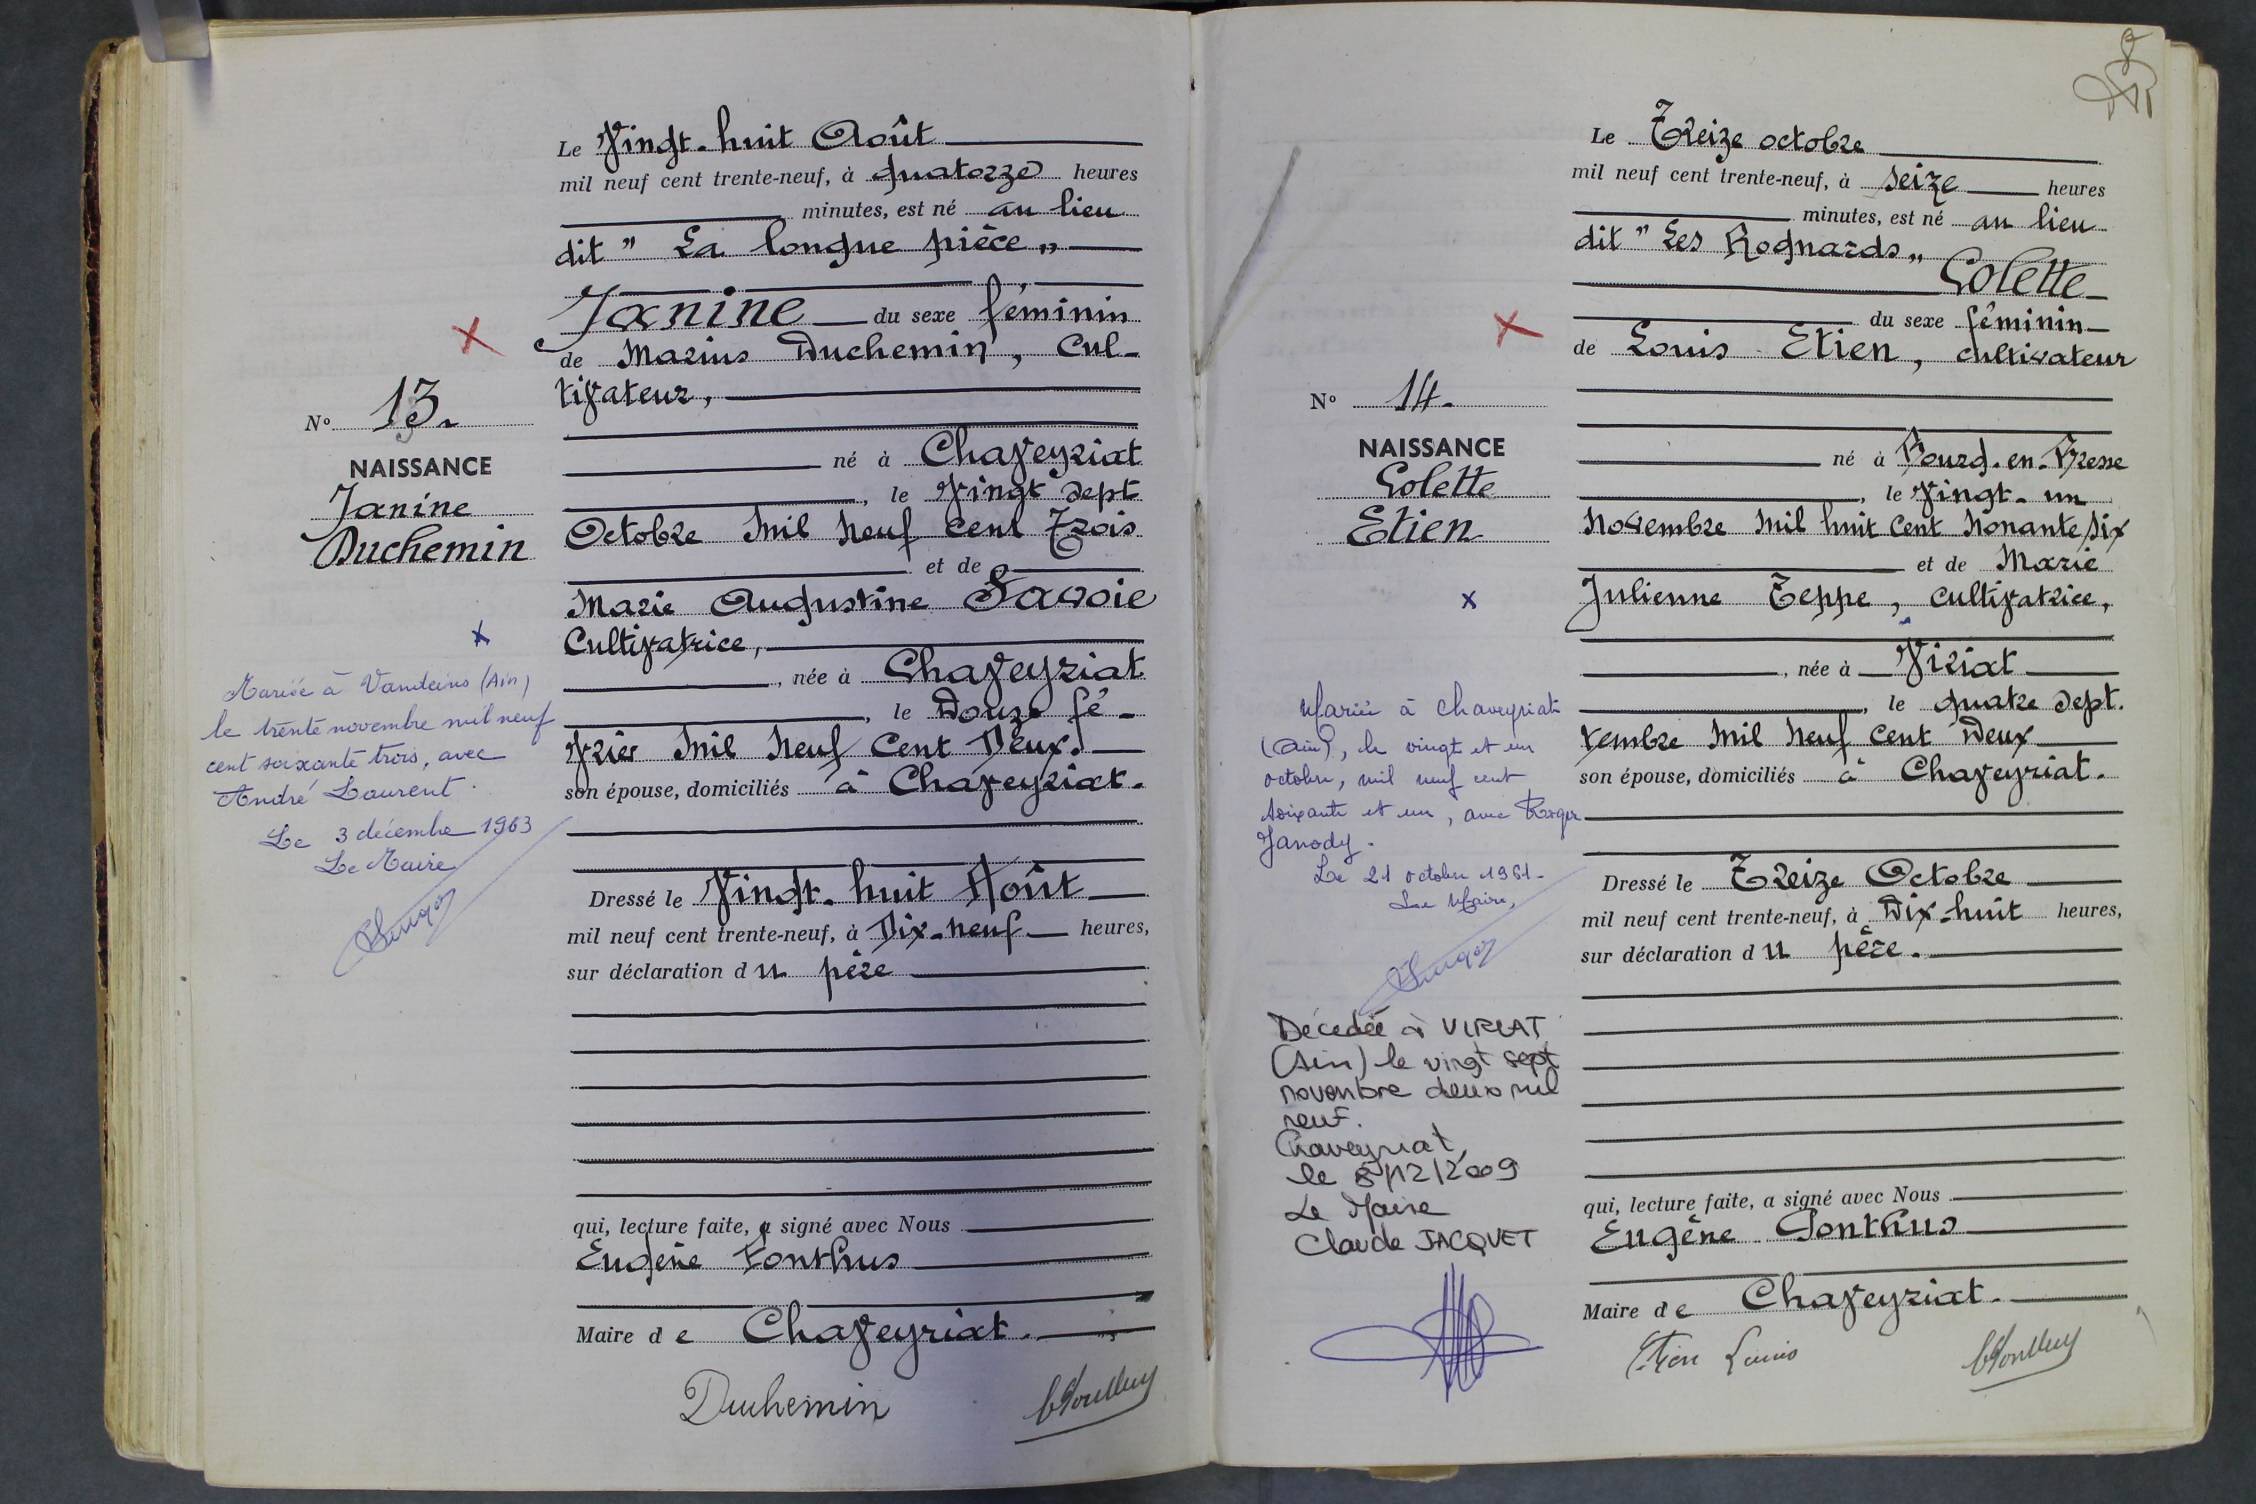 Le Vingt-huit Août
mil neuf cent trente-neuf, à quatorze heures
minutes, est né au lieu
dit " La longue pièce "
Janine du sexe féminin
de Marius Duchemin, Cul-
tivateur,
né à Chaveyriat
, le Vingt sept
Octobre Mil Neuf Cent Trois
et de
Marie Augustine Savoie
Cultivatrice,
, née à Chaveyriat
, le Douze fé-
vrier Mil Neuf Cent Deux
son épouse, domiciliés à Chaveyriat.
Dressé le Vingt-huit Août
mil neuf cent trente-neuf, à Dix-neuf heures,
sur déclaration du père
qui, lecture faite, a signé avec Nous
Eugène Ponthus
Maire de Chaveyriat.
Duchemin
N° 13.
NAISSANCE
Janine
Duchemin
Mariée à Vandeins (Ain)
le trente novembre mil neuf
cent soixante trois, avec
André Laurent.
Le 3 décembre 1963
Le Maire
Le Treize octobre
mil neuf cent trente-neuf, à seize heures
minutes, est né au lieu
dit " Les Rognards "
Colette
du sexe féminin
de Louis Etien, cultivateur
né à Bourg-en-Bresse
, le Vingt-un
Novembre Mil huit Cent Nonante six
et de Marie
Julienne Teppe, Cultivatrice,
, née à Viriat
, le quatre Sept.
tembre Mil Neuf Cent Deux
son épouse, domiciliés à Chaveyriat.
Dressé le Treize Octobre
mil neuf cent trente-neuf, à Dix-huit heures,
sur déclaration du père.
qui, lecture faite, a signé avec Nous
Eugène Ponthus
Maire de Chaveyriat.
Etien Louis
N° 14.
NAISSANCE
Colette
Etien
Mariée à Chaveyriat
(Ain), le vingt et un
octobre, mil neuf cent
soixante et un, avec Roger
Janody.
Le 21 octobre 1961-
Le Maire,
Décédée à VIRIAT
(Ain) le vingt sept
novembre deux mil
neuf.
Chaveyriat,
le 8/12/2009
Le Maire
Claude JACQUET